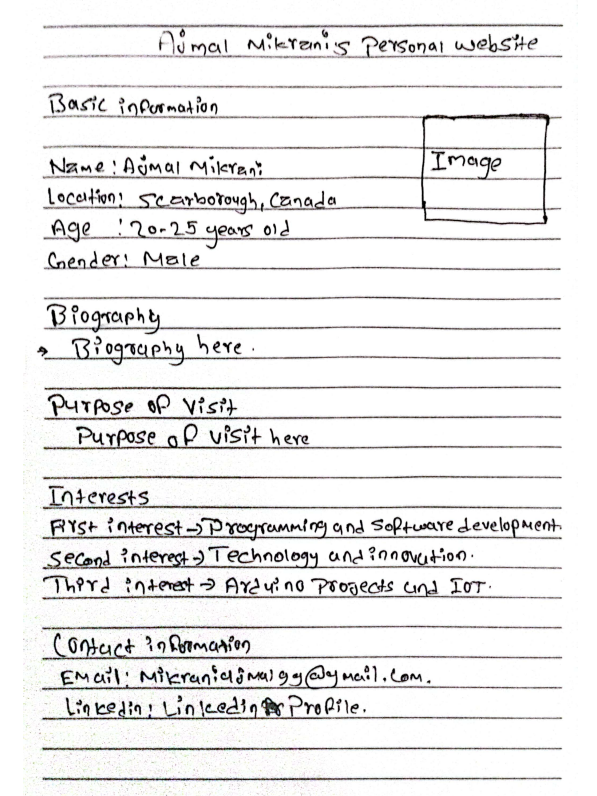 Ajmal Mikrani's Personal website
Basic information
Image
Name: Ajmal Mikrani
Location: Scarborough, Canada
Age : 20-25 years old
Gender: Male
Biography
→ Biography here.
Purpose of Visit
Purpose of visit here
Interests
First interest → Programming and Software development.
Second interest → Technology and innovation.
Third interest → Arduino Projects and IOT.
Contact information
Email: Mikraniajmal99@gmail.com.
Linkedin: Linkedin Profile.